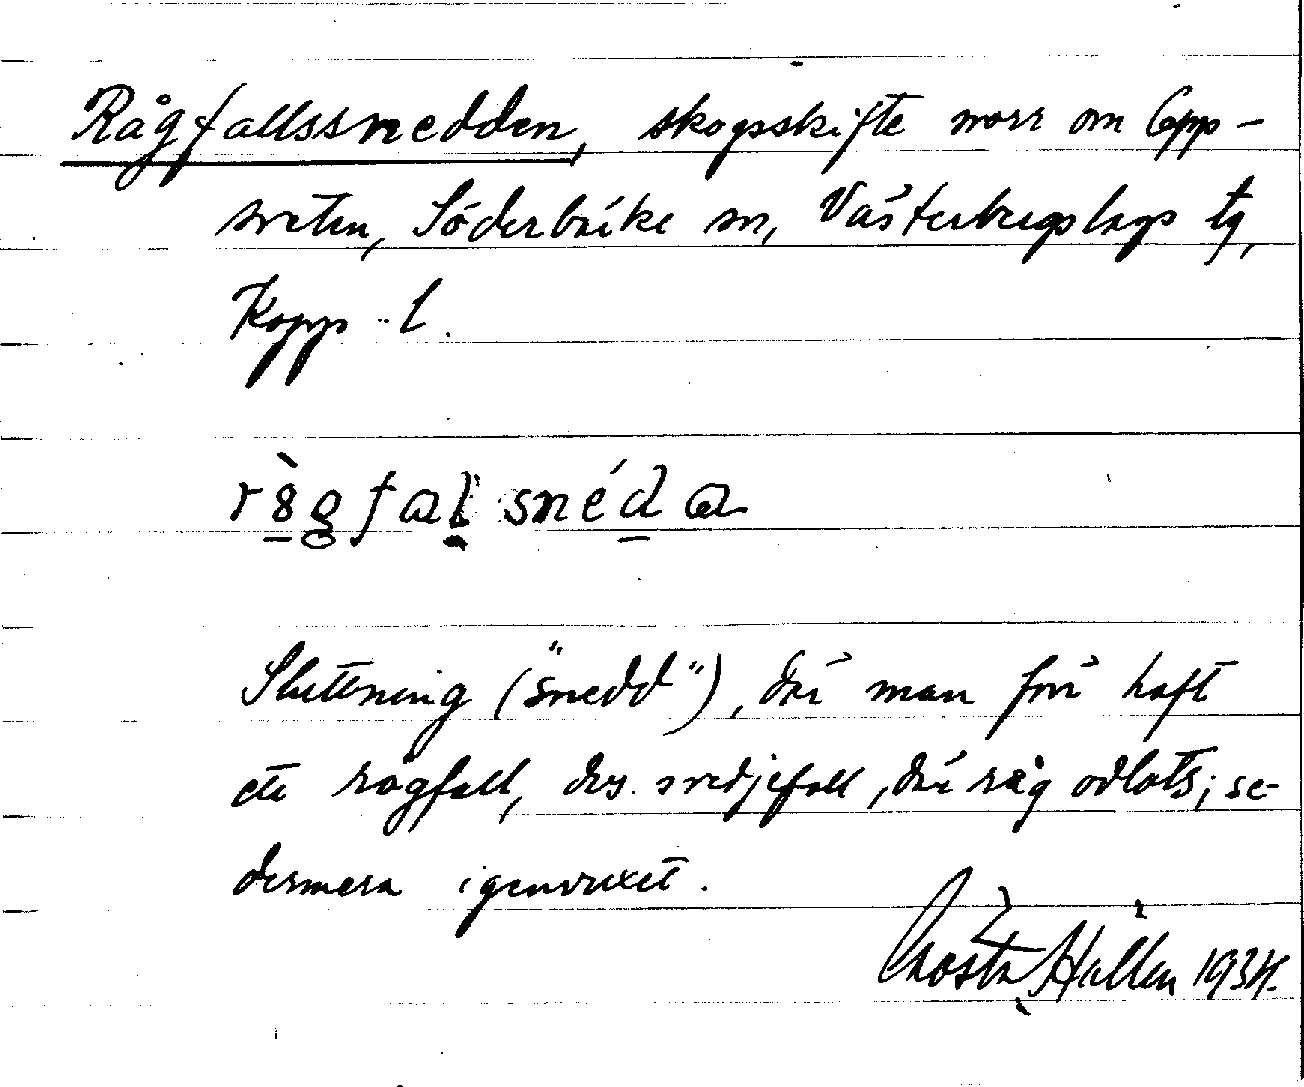 Rågfallssnedden, skogsskifte norr om Opp-
sveten, Söderbärke sn, Västerbergslags tg,
Kopp. l.
rågfal snéda
Sluttning ("snedd"), där man förr haft
ett rågfall, dvs. svedjefall, där råg odlats; se-
dermera igenvuxet.
Gösta Hallén 1934.